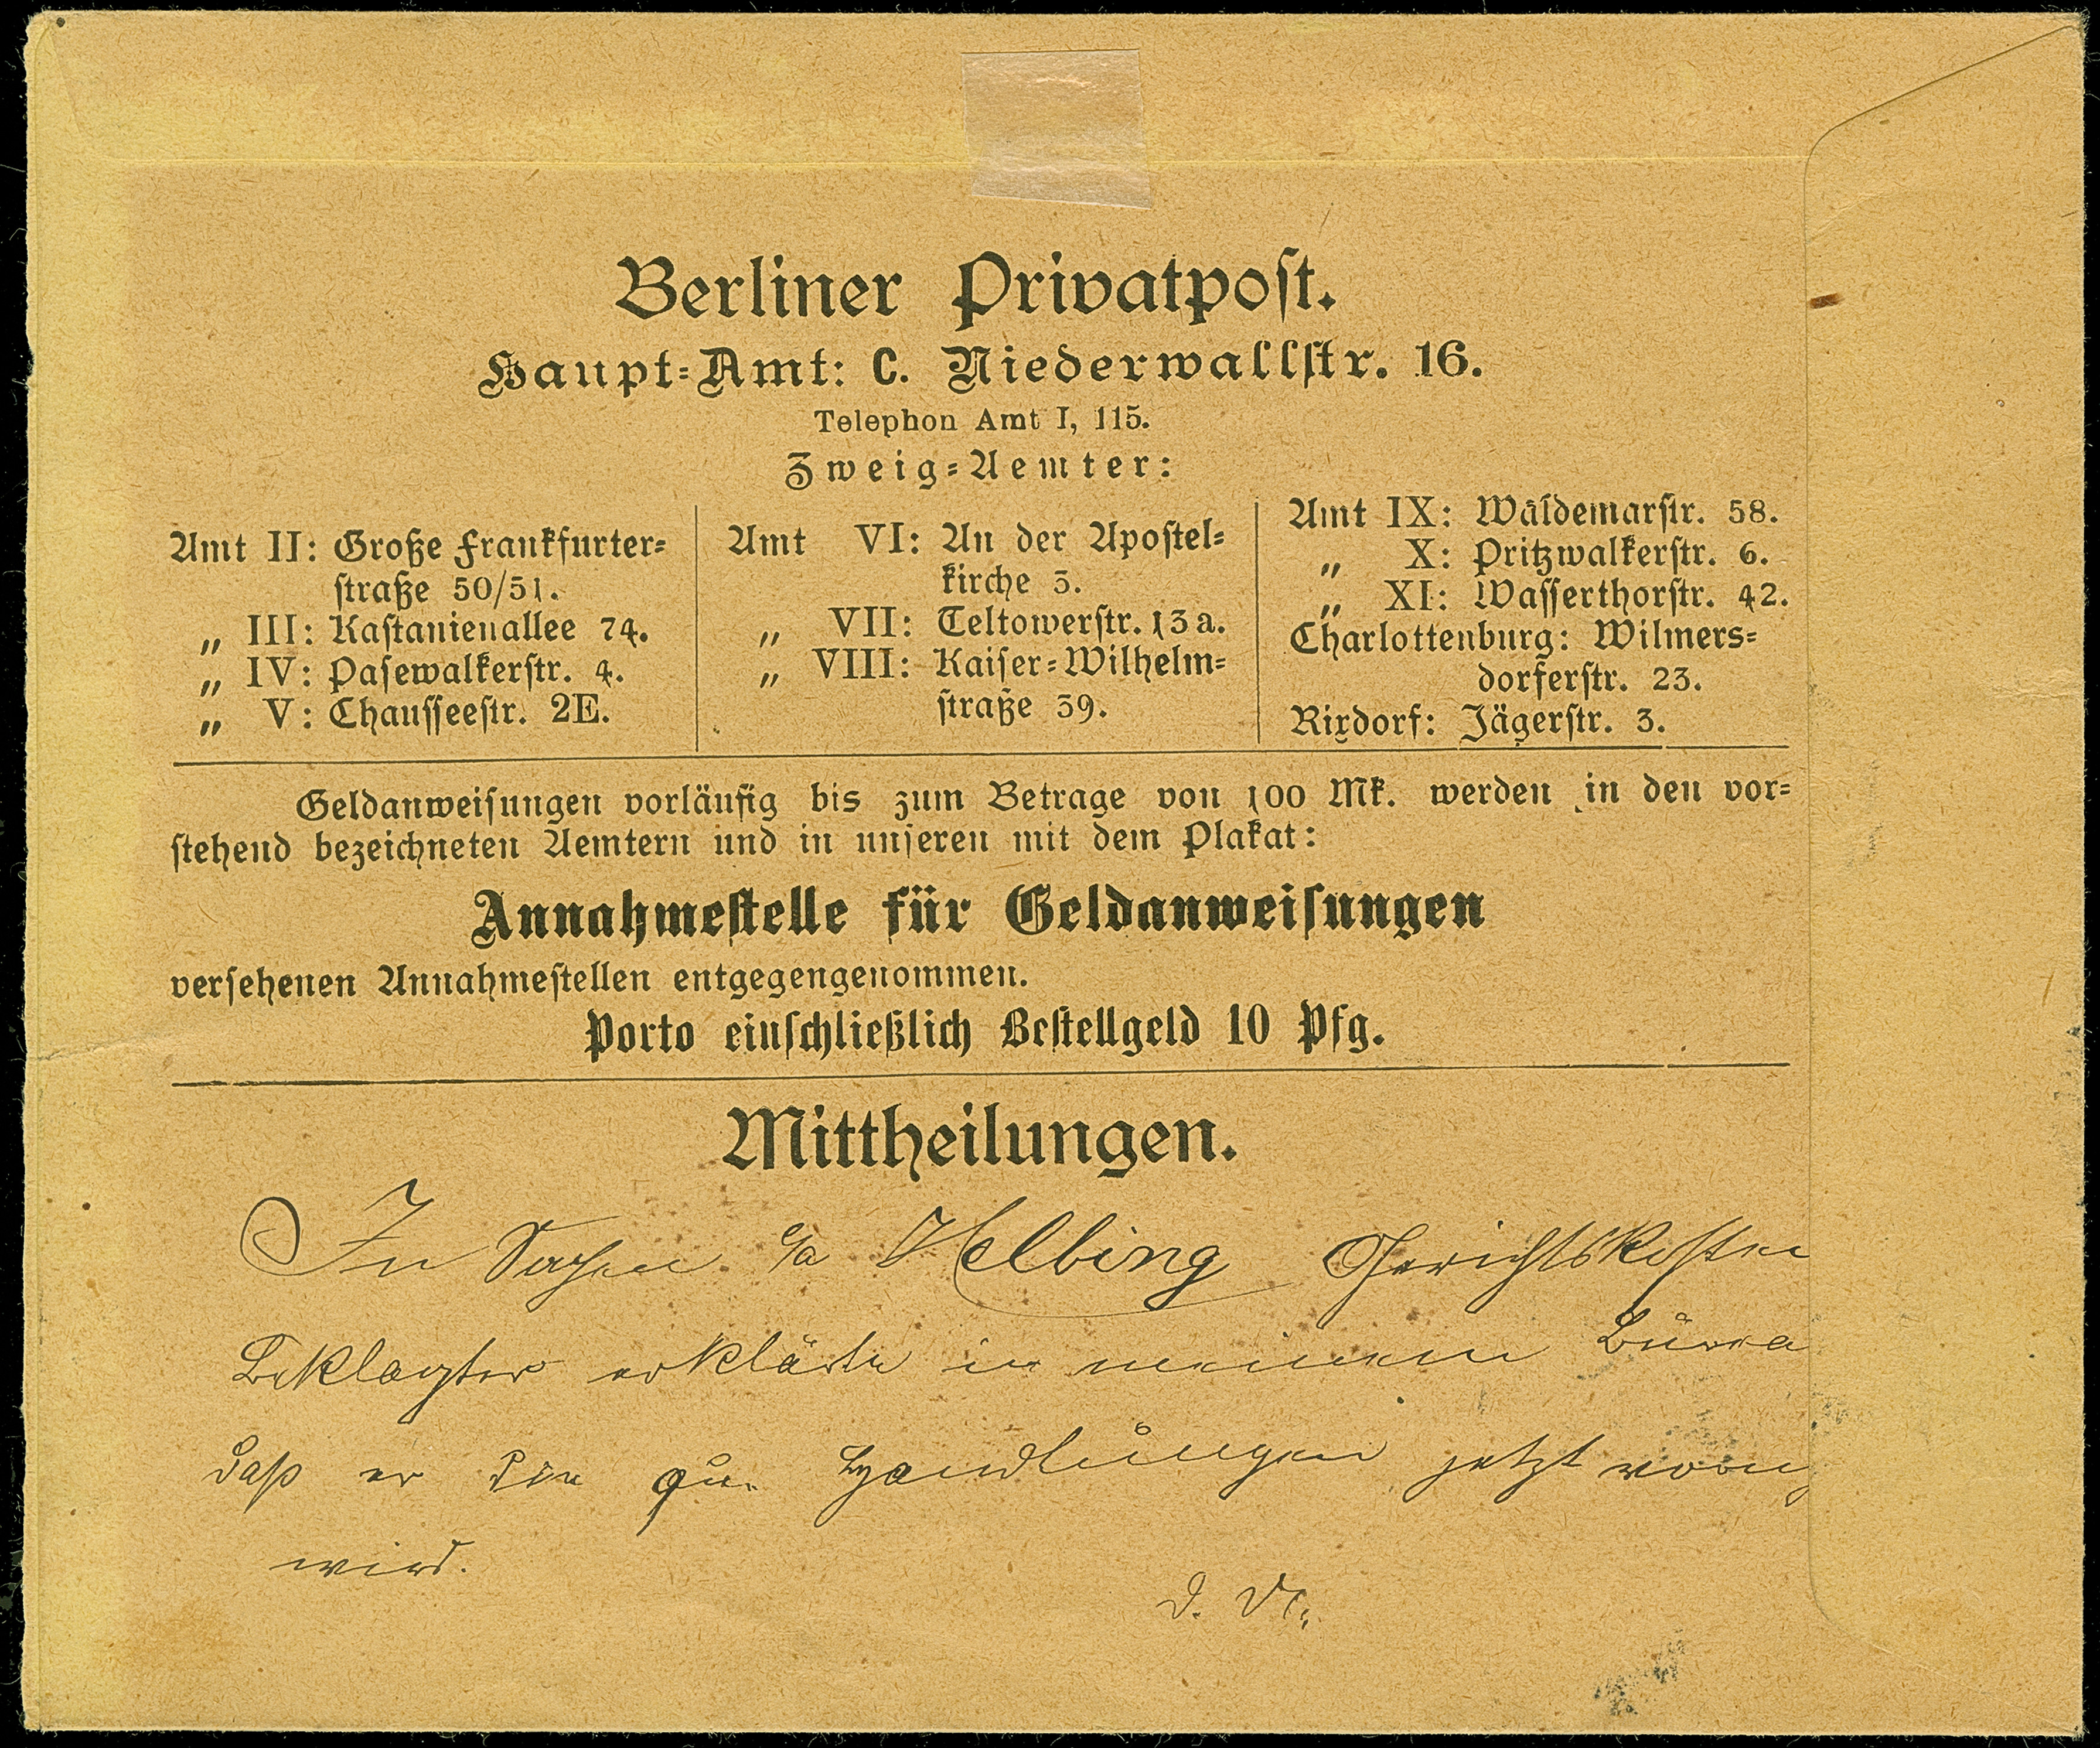 Berliner Privatpost.
Haupt=Amt: C. Niederwallstr. 16.
Telephon Amt I, 115.
Zweig=Aemter:
Amt II: Große Frankfurter=
straße 50/51.
„ III: Kastanienallee 74.
„ IV: Pasewalkerstr. 4.
„ V: Chausseestr. 2E.
Amt VI: An der Apostel=
kirche 3.
„ VII: Teltowerstr. 13a.
„ VIII: Kaiser=Wilhelm=
straße 39.
Amt IX: Waldemarstr. 58.
„ X: Pritzwalkerstr. 6.
„ XI: Wasserthorstr. 42.
Charlottenburg: Wilmers=
dorferstr. 23.
Rixdorf: Jägerstr. 3.
Geldanweisungen vorläufig bis zum Betrage von 100 Mk. werden in den vor=
stehend bezeichneten Aemtern und in unseren mit dem Plakat:
Annahmestelle für Geldanweisungen
versehenen Annahmestellen entgegengenommen.
Porto einschließlich Bestellgeld 10 Pfg.
Mittheilungen.
In Sachen c/a Helbing Gerichtskosten
Beklagter erklärte in meinem Burea
daß er die qu. Handlungen jetzt
wird.